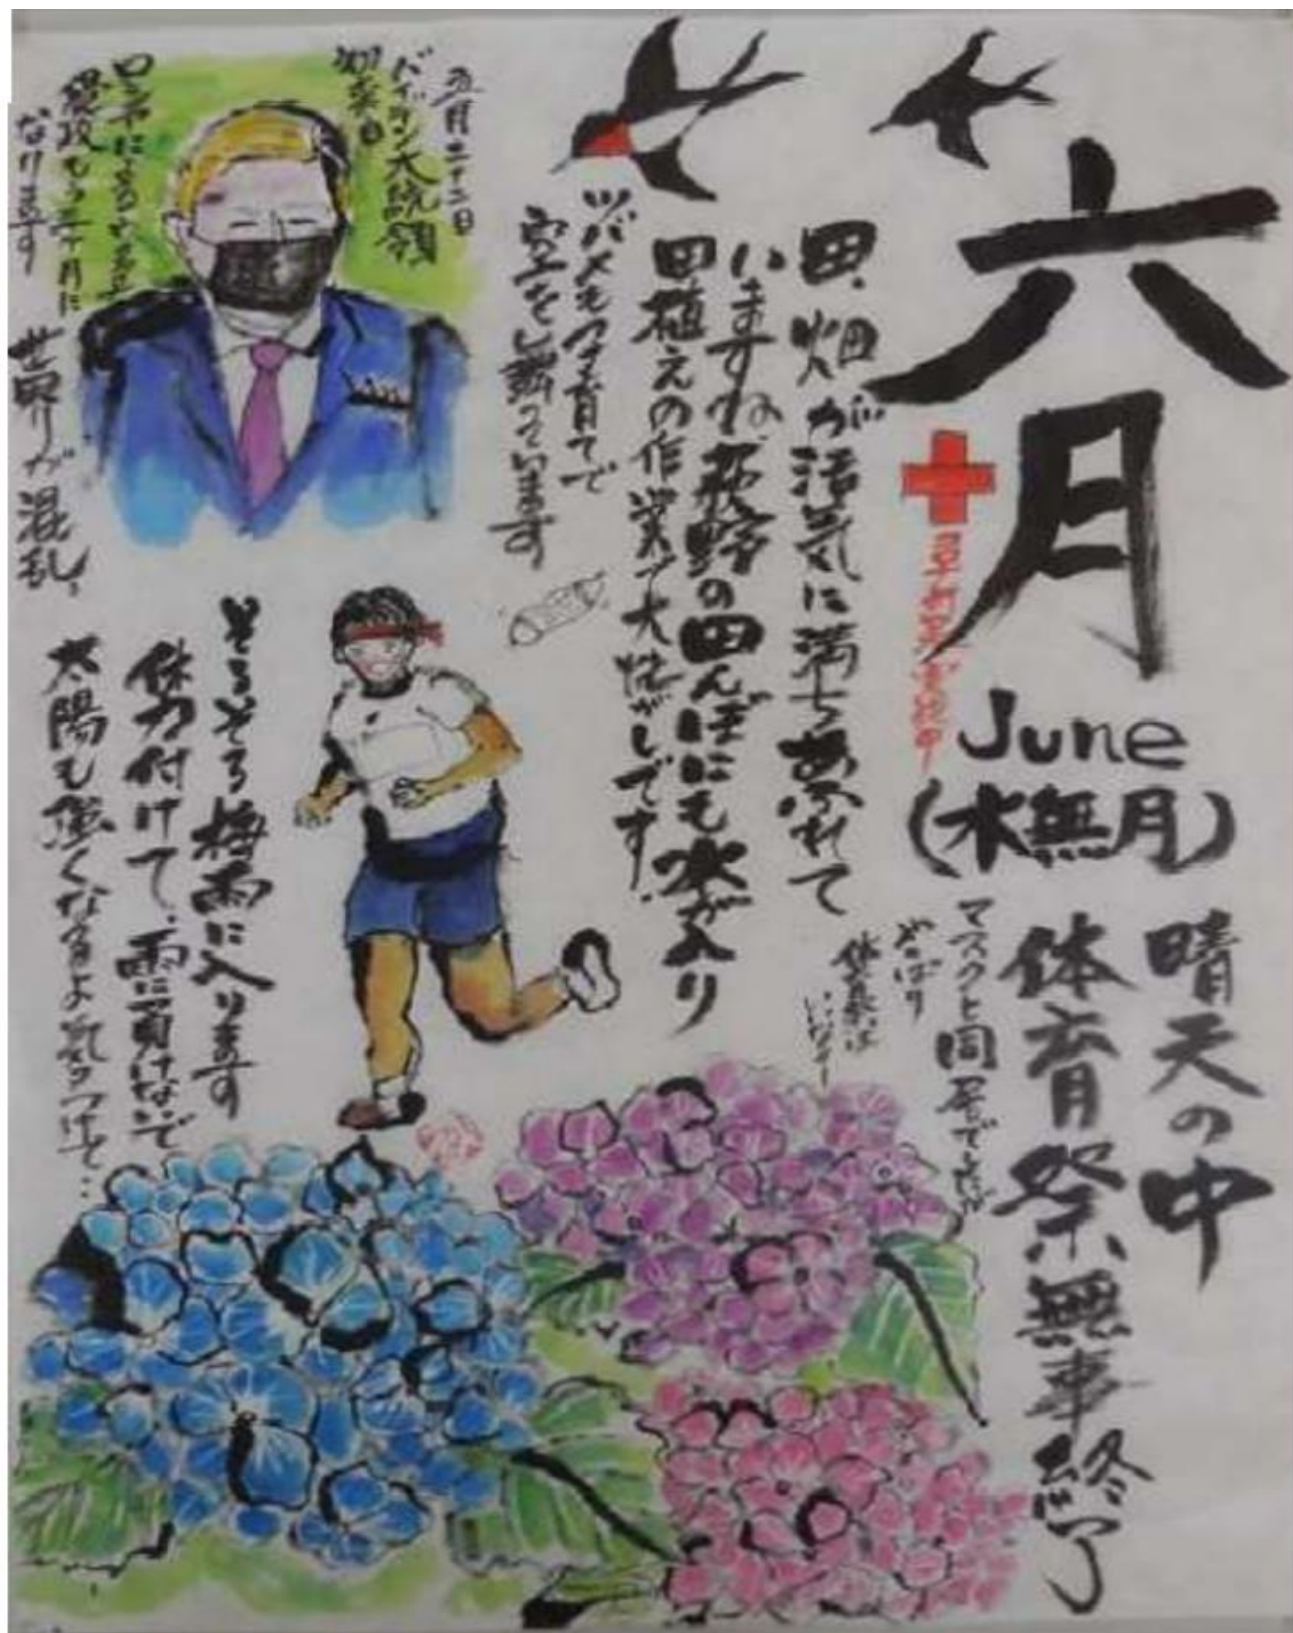 六月
June
(水無月)
晴天の中
体育祭無事終了
マスクと同居でしたが
やっぱり
体育祭は
いいなー
田、畑が活気に満ちあふれて
いますね。萩野の田んぼにも水が入り
田植えの作業で大忙しです。
ツバメも子育てで
空を舞っています
五月二十二日
バイデン大統領
初来日
ロシアによるウクライナ
侵攻も三ヶ月に
なります
世界が混乱。
そろそろ梅雨に入ります
体力付けて、雨に負けないで
太陽も強くなるよ気をつけて…